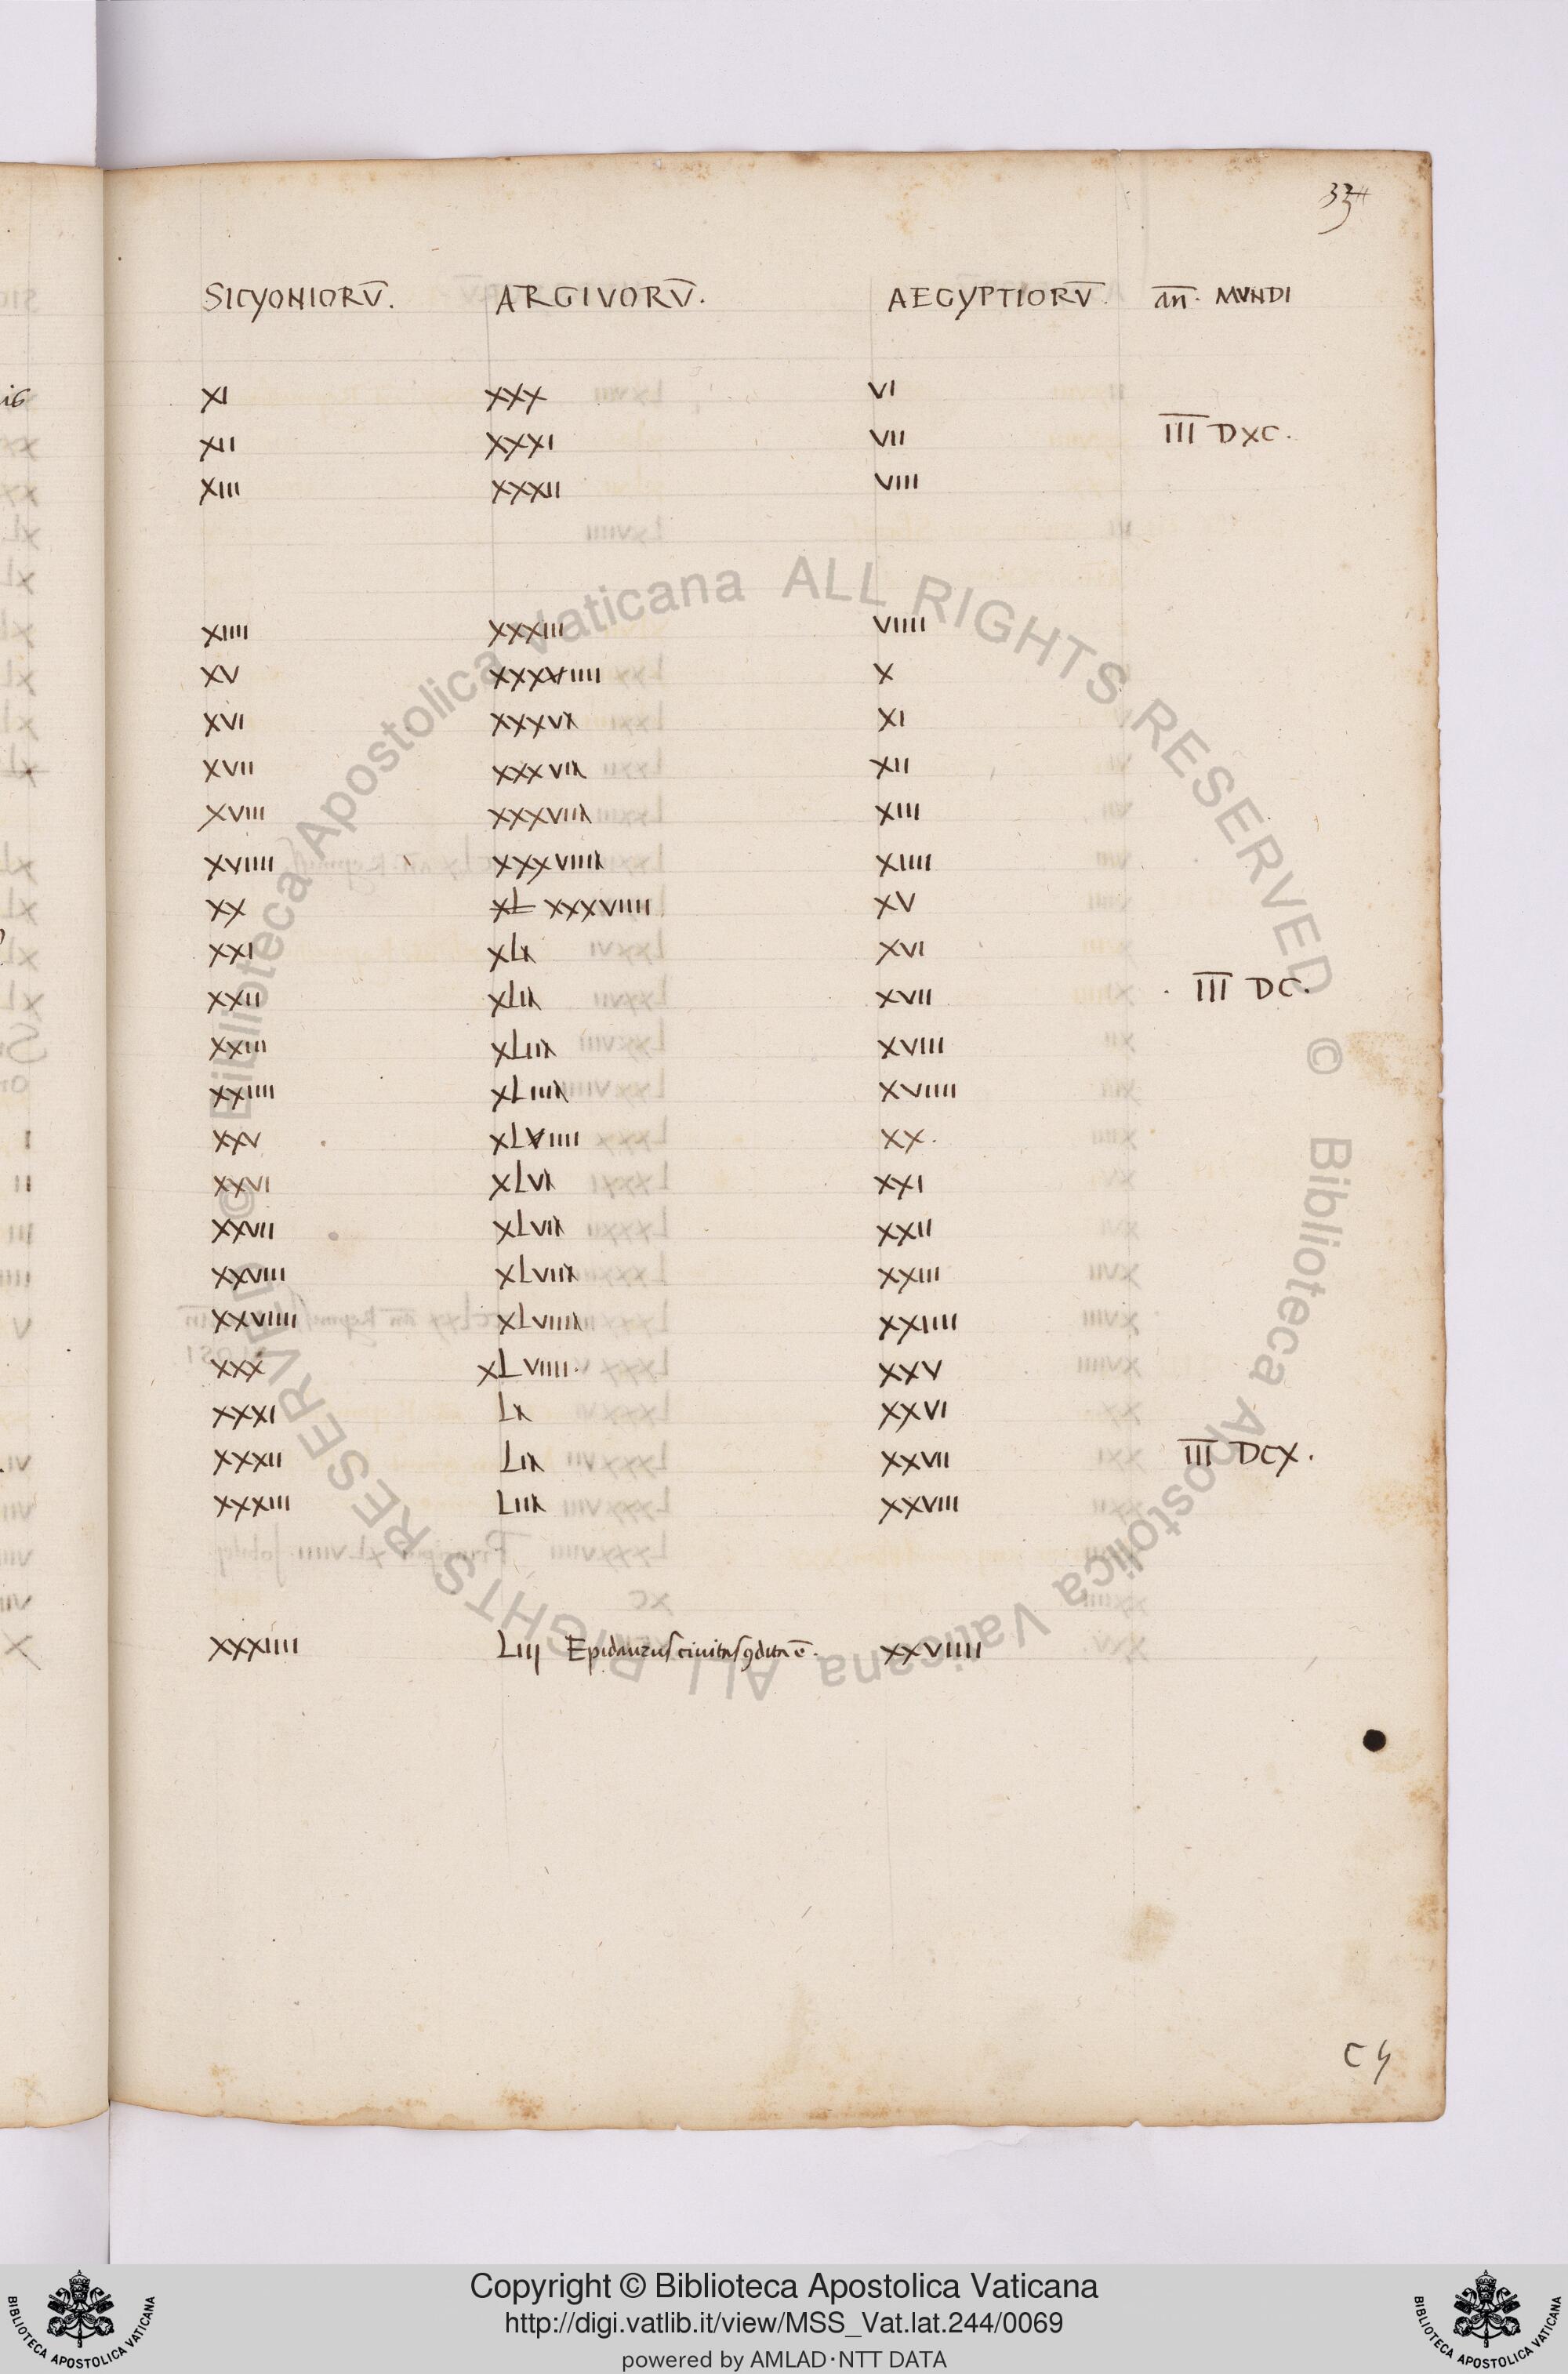 334
SICYONIORV̄. ARGIVORV̄. AEGYPTIORV̄. an̄. MVNDI
XI XXX VI
XII XXXI VII I̅I̅I̅ DXC.
XIII XXXII VIII
XIIII XXXIII VIIII
XV XXXVIIII X
XVI XXXVI XI
XVII XXXVII XII
XVIII XXXVIII XIII
XVIIII XXXVIIII XIIII
XX XL XXXVIIII XV
XXI XLI XVI
XXII XLII XVII I̅I̅I̅ DC.
XXIII XLIII XVIII
XXIIII XLIIII XVIIII
XXV XLVIIII XX.
XXVI XLVI XXI
XXVII XLVII XXII
XXVIII XLVIII XXIII
XXVIIII XLVIIII XXIIII
XXX XLVIIII. XXV
XXXI LI XXVI
XXXII LII XXVII I̅I̅I̅ DCX.
XXXIII LIII XXVIII
XXXIIII LIIJ Epidaurus civitas ꝯdita ē. XXVIIII
C 4
© Biblioteca Apostolica Vaticana ALL RIGHTS RESERVED
© Biblioteca Apostolica Vaticana ALL RIGHTS RESERVED
Copyright © Biblioteca Apostolica Vaticana
http://digi.vatlib.it/view/MSS_Vat.lat.244/0069
powered by AMLAD·NTT DATA
BIBLIOTECA APOSTOLICA VATICANA
BIBLIOTECA APOSTOLICA VATICANA